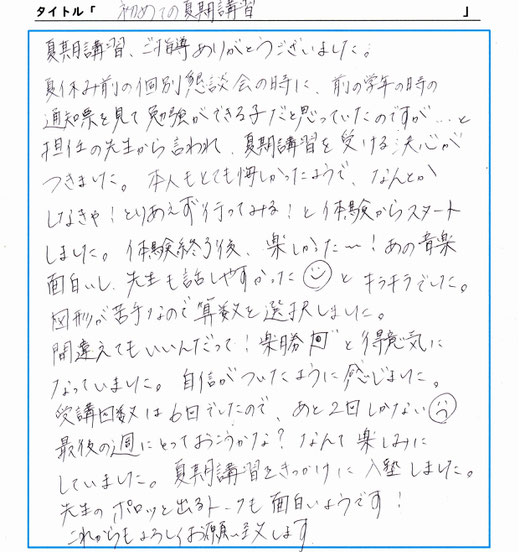 タイトル「 初めての夏期講習 」
夏期講習、ご指導ありがとうございました。
夏休み前の個別懇談会の時に、前の学年の時の
通知票を見て勉強ができる子だと思っていたのですが…と
担任の先生から言われ、夏期講習を受ける決心が
つきました。本人もとても悔しかったようで、なんとか
しなきゃ!とりあえず行ってみる!と体験からスタート
しました。体験終了後、楽しかった〜!あの音楽
面白いし、先生も話しやすかった と キラキラでした。
図形が苦手なので算数を選択しました。
間違えてもいいんだって!楽勝 と得意気に
なっていました。自信がついたように感じました。
受講回数は6回でしたので、あと2回しかない
最後の週にとっておこうかな?なんて楽しみに
していました。夏期講習をきっかけに入塾しました。
先生のポロッと出るトークも面白いようです!
これからもよろしくお願い致します